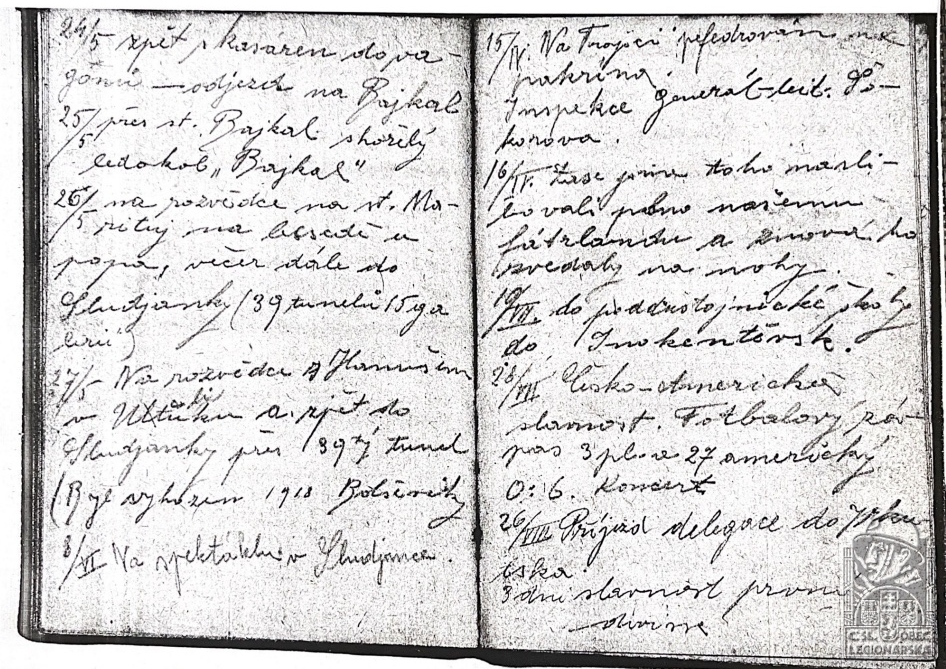 24/5 zpět z kasáren do va-
gónů – odjezd na Bajkal
25/5 přes st. Bajkal shořelý
ledokol „Bajkal“
26/5 na rozvědce na st. Ma-
rituj na besedě u
popa, večer dále do
Sludjanky (39 tunelů 15 ga
lerií)
27/5 Na rozvědce s Hanušem
v a zpět do
Sludjanky přes 39tý tunel
(Byl vyhozen 1918 Bolševiky
8/VI Na spektáklu v Sludjance.
15/VI. Na Trojici na
Inspekce Generál-leit. Sý-
korova.
16/VI. Zase jsme toho nasli-
bovali našemu
fátrlandu a znova ho
zvedaly na nohy.
19/VII. do poddůstojnické školy
do Inokentěvsk.
28/VII Česko-Americká
slavnost. Fotbalový záv-
pas 3 pl. a 27 americký
0:6. Koncert
26/VIII Příjezd delegace do Irku
tska.
3 dní slavnost první
divise
Č.SL. OBEC
LEGIONÁŘSKÁ